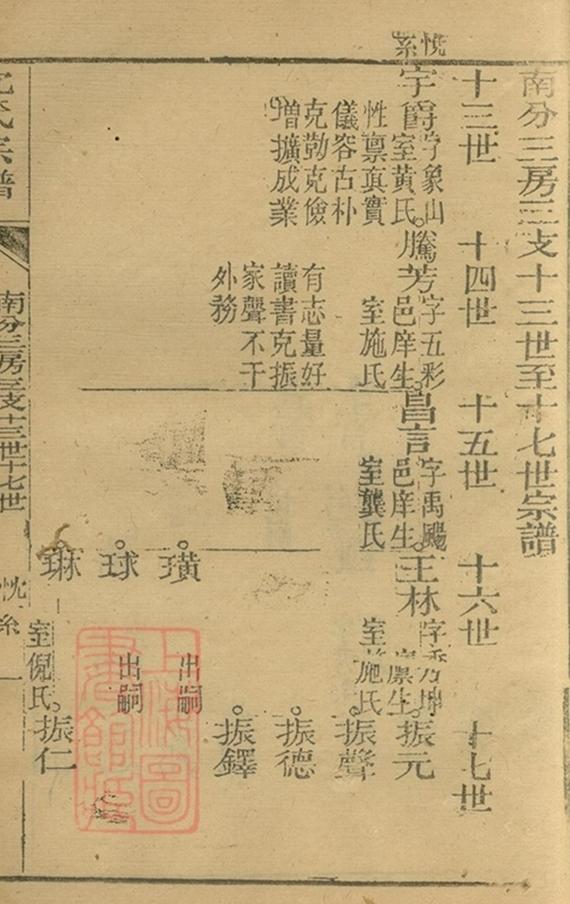 南分三房三支十三世至十七世宗譜
十三世 十四世 十五世 十六世 十七世
忱系
宇爵
字象山
室黄氏
性禀真實
儀容古朴
克勤克儉
增擴成業
騰芳
字五彩
邑庠生
室施氏
有志量好
讀書克振
家聲不干
外務
昌言
字禹颺
邑庠生
室龔氏
王林
廪生
施氏
振元
振聲
振德
振鐸
璜
出嗣
球
出嗣
琳
室倪氏
振仁
氏宗譜
南分三房三支十三世十七世
忱系
上海圖書館藏